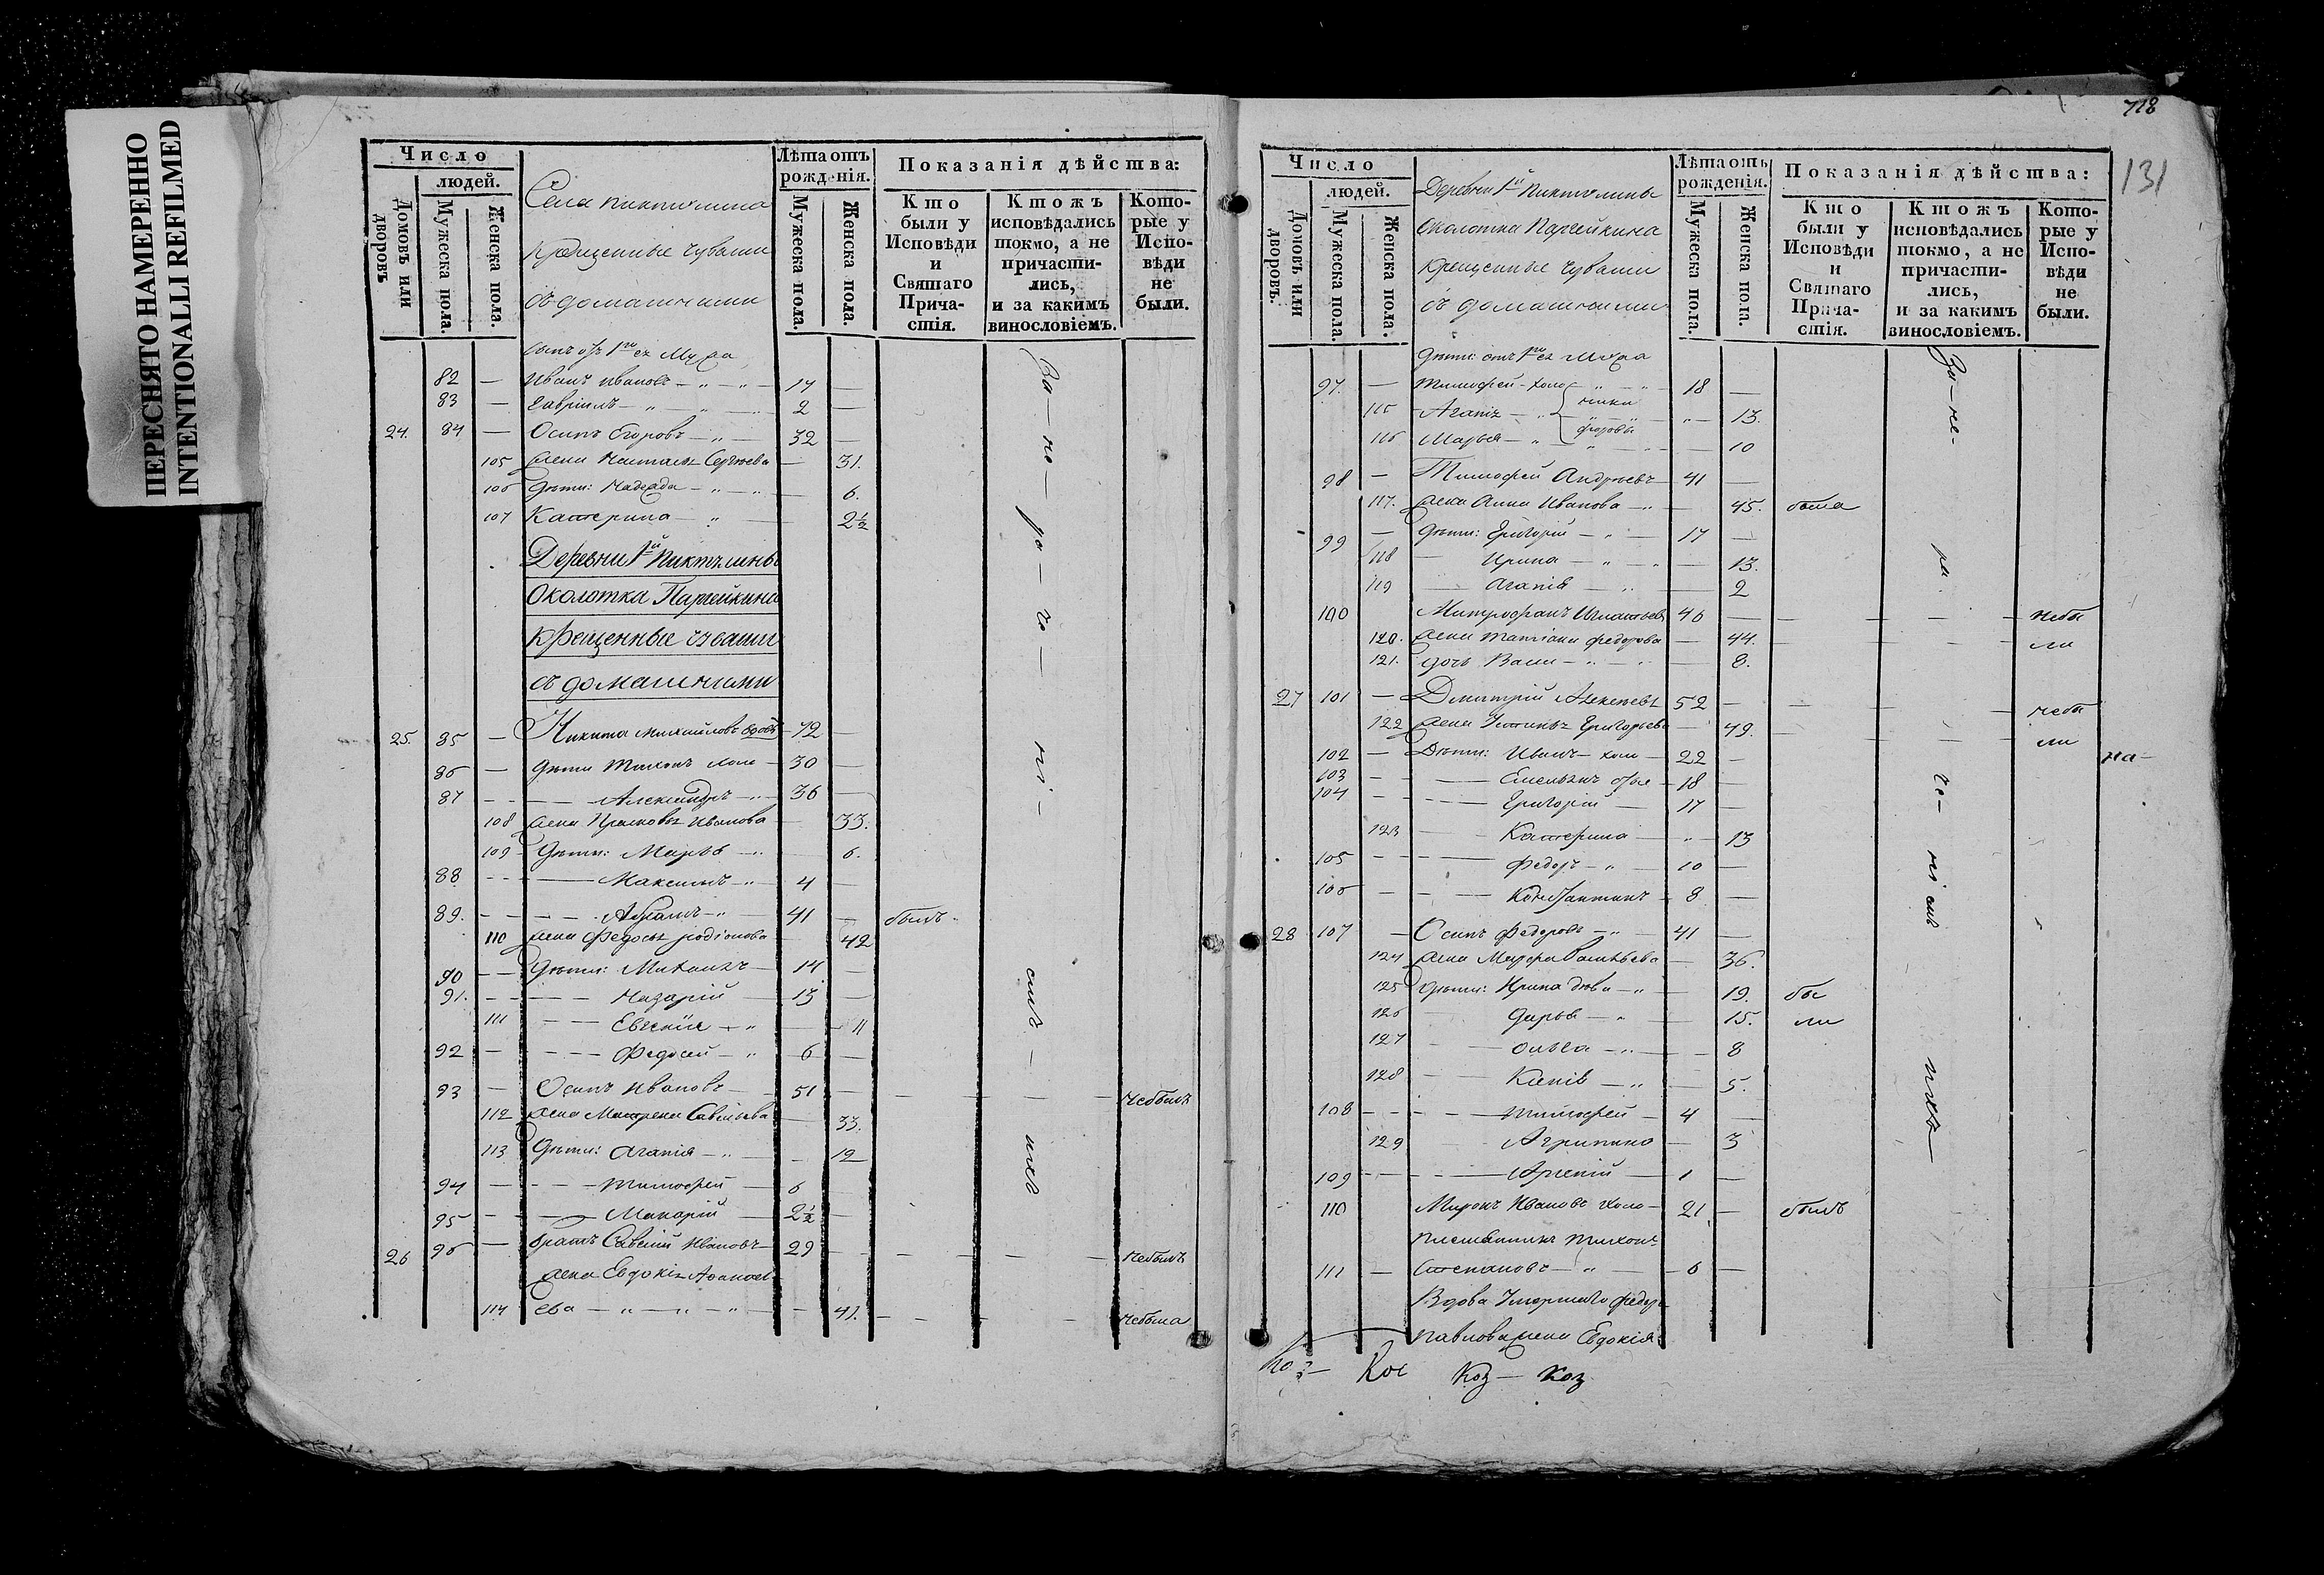 ПЕРЕСНЯТО НАМЕРЕННО
INTENTIONALLI REFILMED
Число
людей.
Домовъ или дворовъ
Мужеска пола.
Женска пола.
Села Пиктулина
крещенные чуваши
съ домашними
Лѣта отъ рожденія.
Мужеска пола.
Женска пола.
Показанія дѣйства:
Кто были у Исповѣди и Святаго Причастія.
Ктожъ исповѣдались токмо, а не причастились, и за какимъ винословіемъ.
Которые у Исповѣди не были.
82 — Иванъ Ивановъ — 14 —
83 — Гавріилъ — 2 —
24. 84 — Осипъ Егоровъ — 32 —
105 жена Наталья Сергѣева — 31.
106 дѣти: Надежда — 6.
107 Катерина — 2½
Деревни 1й Пиктулины
Околотка Паргейкина
крещенные чуваши
съ домашними
25. 85 — Никита Михайловъ вдовъ 72 —
86 — дѣти Тихонъ холо — 30 —
87 — Александръ — 36 —
108 жена Прасковья Иванова — 33.
109 дѣти: Марья — 6.
88 — Максимъ — 4 —
89. — Абрамъ — 41 — былъ
110 жена Федосья Родіонова — 42
90 — дѣти: Михаилъ — 14 —
91. — Назарій — 13 —
111 — Евгенія — 11
92 — Федосей — 6 —
93 — Осипъ Ивановъ — 51 — небылъ
112 жена Матрена Савельева — 33.
113 дѣти: Агапія — 12
94 — Тимофей — 6
95 — Макарій — 2½ —
26 96 — братъ Савелій Ивановъ — 29 — небылъ
жена Евдокія Афанась
114 ева — 41. — небыла
За — не — ра — че — ні — емъ — ихъ
718
131
Число
людей.
Домовъ или дворовъ.
Мужеска пола.
Женска пола.
Деревни 1й Пиктулины
Околотка Паргейкина
крещенные чуваши
съ домашними
Лѣта отъ рожденія.
Мужеска пола.
Женска пола.
Показанія дѣйства:
Кто были у Исповѣди и Святаго Причастія.
Ктожъ исповѣдались токмо, а не причастились, и за какимъ винословіемъ.
Которые у Исповѣди не были.
97. — Тимофей — холо 18 —
115 Агапія — 13.
116 Марья — 10
98 — Тимофей Андреевъ 41 —
117. жена Анна Иванова — 45. была
99 — дѣти: Григорій — 17 —
118 — Ирина — 13.
119 — Агапія — 2
100 Митрофанъ Игнатьевъ 46 — небы
120. жена Татіана Федорова — 44. — ли
121. дочь — 8.
27 101 — Дмитрій Алексѣевъ 52 — небы
122 жена Устинья Григорьева — 49. — ли
102 — Дѣти: Иванъ — холо — 22 —
103 — Емельянъ — 18 —
104 — Григорій — 17 —
123 — Катерина — 13
105 — Федоръ — 10 —
106 — Константинъ — 8 —
28 107 — Осипъ Федоровъ — 41 —
124 жена Марфа Васильева — 36.
125 дѣти: Ирина дѣва — 19. бы
126 — Дарья — 15. ли
127 — Ольга — 8
128 — Ксенія — 5.
108 — Тимофей — 4 —
129 — Агрипина — 3
109 — Арсеній — 1 —
110 Миронъ Ивановъ холо — 21 — былъ
племянникъ Тихонъ
111 — Степановъ — 6 —
Вдова Умершаго Федор
Павлова жена Евдокія
За — не — ра — че — ніемъ — ихъ
на —
Коз — Коз